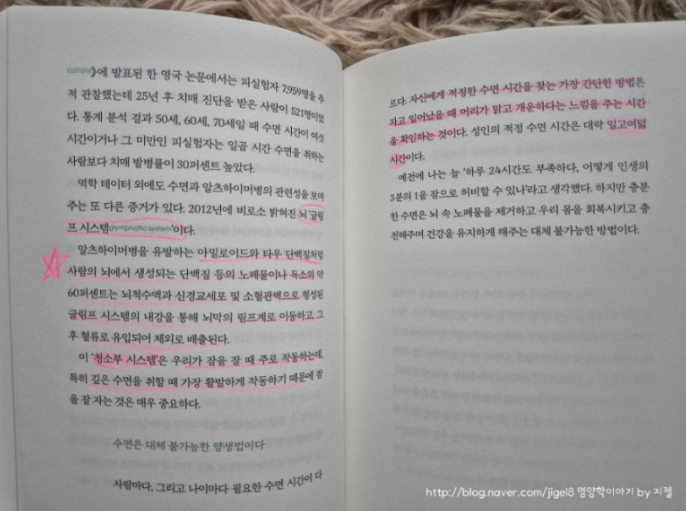 cations》에 발표된 한 영국 논문에서는 피실험자 7,959명을 추
적 관찰했는데 25년 후 치매 진단을 받은 사람이 521명이었
다. 통계 분석 결과 50세, 60세, 70세일 때 수면 시간이 여섯
시간이거나 그 미만인 피실험자는 일곱 시간 수면을 취하는
사람보다 치매 발병률이 30퍼센트 높았다.
역학 데이터 외에도 수면과 알츠하이머병의 관련성을 보여
주는 또 다른 증거가 있다. 2012년에 비로소 밝혀진 뇌 '글림
프 시스템glymphatic system'이다.
알츠하이머병을 유발하는 아밀로이드와 타우 단백질처럼
사람의 뇌에서 생성되는 단백질 등의 노폐물이나 독소의 약
60퍼센트는 뇌척수액과 신경교세포 및 소혈관벽으로 형성된
글림프 시스템의 내강을 통해 뇌막의 림프계로 이동하고 그
후 혈류로 유입되어 체외로 배출된다.
이 '청소부 시스템'은 우리가 잠을 잘 때 주로 작동하는데,
특히 깊은 수면을 취할 때 가장 활발하게 작동하기 때문에 잠
을 잘 자는 것은 매우 중요하다.
수면은 대체 불가능한 양생법이다
사람마다, 그리고 나이마다 필요한 수면 시간이 다
르다. 자신에게 적정한 수면 시간을 찾는 가장 간단한 방법은
자고 일어났을 때 머리가 맑고 개운하다는 느낌을 주는 시간
을 확인하는 것이다. 성인의 적정 수면 시간은 대략 일고여덟
시간이다.
예전에 나는 늘 '하루 24시간도 부족하다, 어떻게 인생의
3분의 1을 잠으로 허비할 수 있나'라고 생각했다. 하지만 충분
한 수면은 뇌 속 노폐물을 제거하고 우리 몸을 회복시키고 충
전해주며 건강을 유지하게 해주는 대체 불가능한 방법이다.
http://blog.naver.com/jigel8 영양학이야기 by 지젤